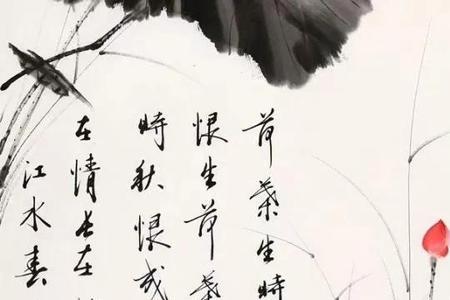 荷葉生時
恨生荷葉
時秋恨成
在情长在
江水